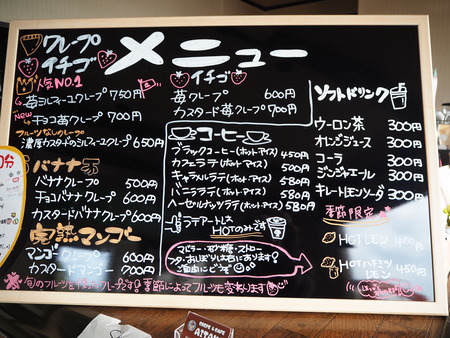 メニュー
クレープ
イチゴ
人気NO.1
苺ミルフィーユクレープ 750円
New
チョコ苺クレープ 700円
フルーツなしのクレープ
濃厚カスタードのミルフィユクレープ 650円
バナナ
バナナクレープ 500円
チョコバナナクレープ 600円
カスタードバナナクレープ 600円
完熟マンゴー
マンゴークレープ 600円
カスタードマンゴー 700円
旬のフルーツを クレープです!季節によってフルーツも変わります
イチゴ
苺クレープ 600円
カスタード苺クレープ 700円
コーヒー
ブラックコーヒー(ホット・アイス) 450円
カフェラテ(ホット・アイス) 500円
キャラメルラテ(ホット・アイス) 580円
バニララテ(ホット・アイス) 580円
ヘーゼルナッツラテ(ホット・アイス) 580円
ラテアートは
HOTのみです
マドラー・ガム・砂糖・ストロー
フタ・おしぼりは右にあります。
ご自由にどうぞ
ソフトドリンク
ウーロン茶 300円
オレンジジュース 300円
コーラ 300円
ジンジャエール 300円
キレートレモンソーダ 300円
季節限定
HOT LEMON 400円
HOT HONEY
LEMON 450円
CREPE & CAFE